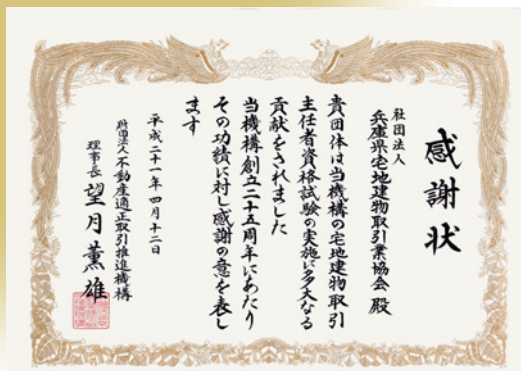 感謝状
社団法人
兵庫県宅地建物取引業協会 殿
貴団体は当機構の宅地建物取引
主任者資格試験の実施に多大なる
貢献をされました
当機構創立二十五周年にあたり
その功績に対し感謝の意を表し
ます
平成二十一年四月十二日
財団法人不動産適正取引推進機構
理事長 望月薫雄